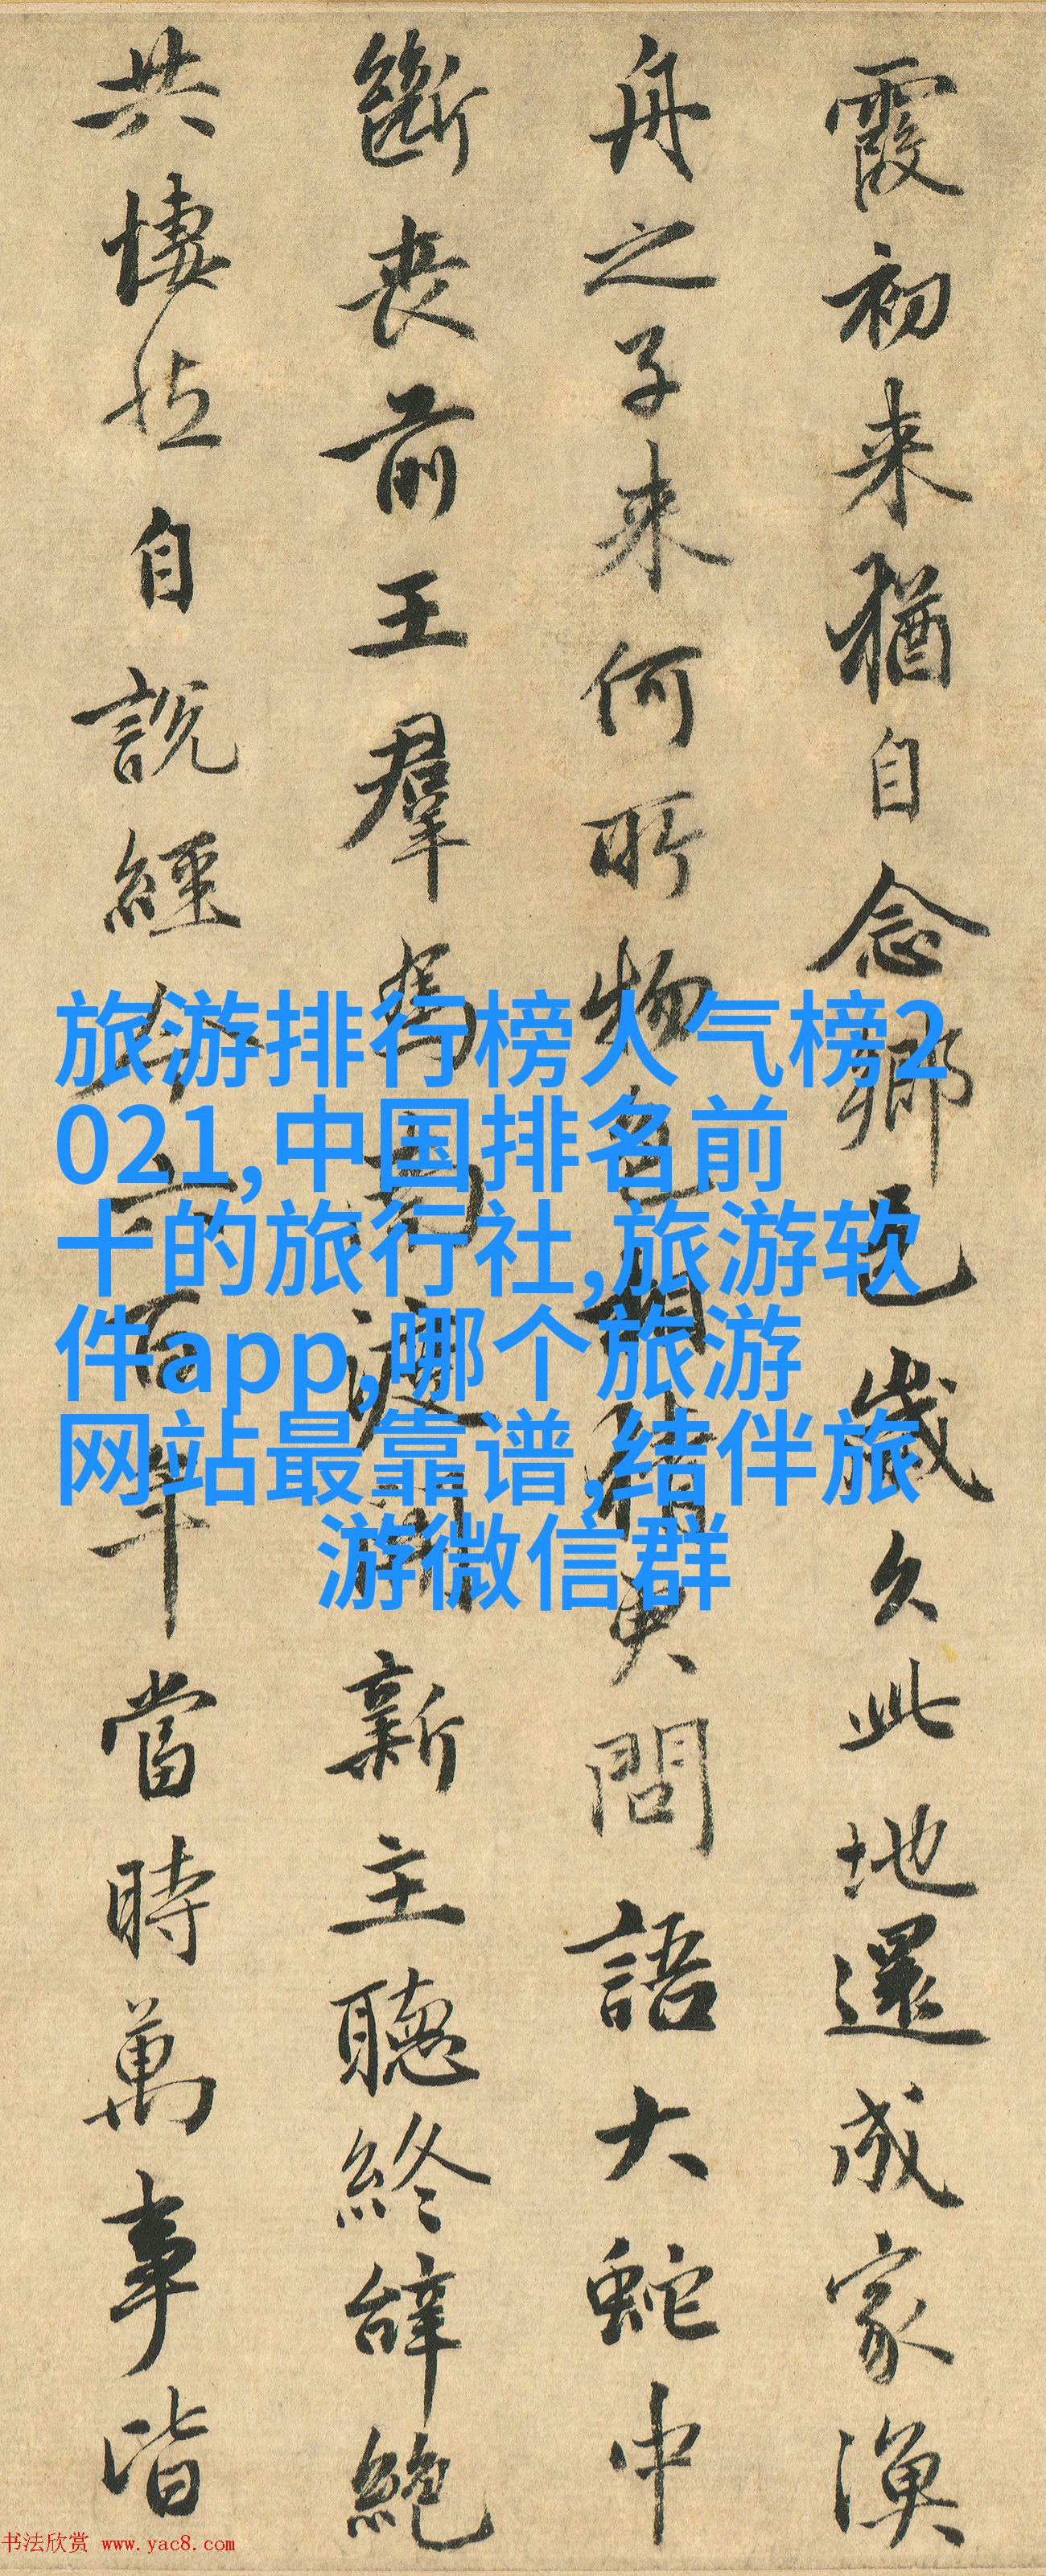 霞初来猶自念鄉邑歲久此地還成家漁
舟之子来何所物色相猜更問語大蛇中
斷丧前王羣馬南渡開新主聽終辭絕
共悽然自說經今六百年當時萬事皆
旅游排行榜人气榜2
021,中国排名前
十的旅行社,旅游软
件app,哪个旅游
网站最靠谱,结伴旅
游微信群
书法欣赏 www.yac8.com